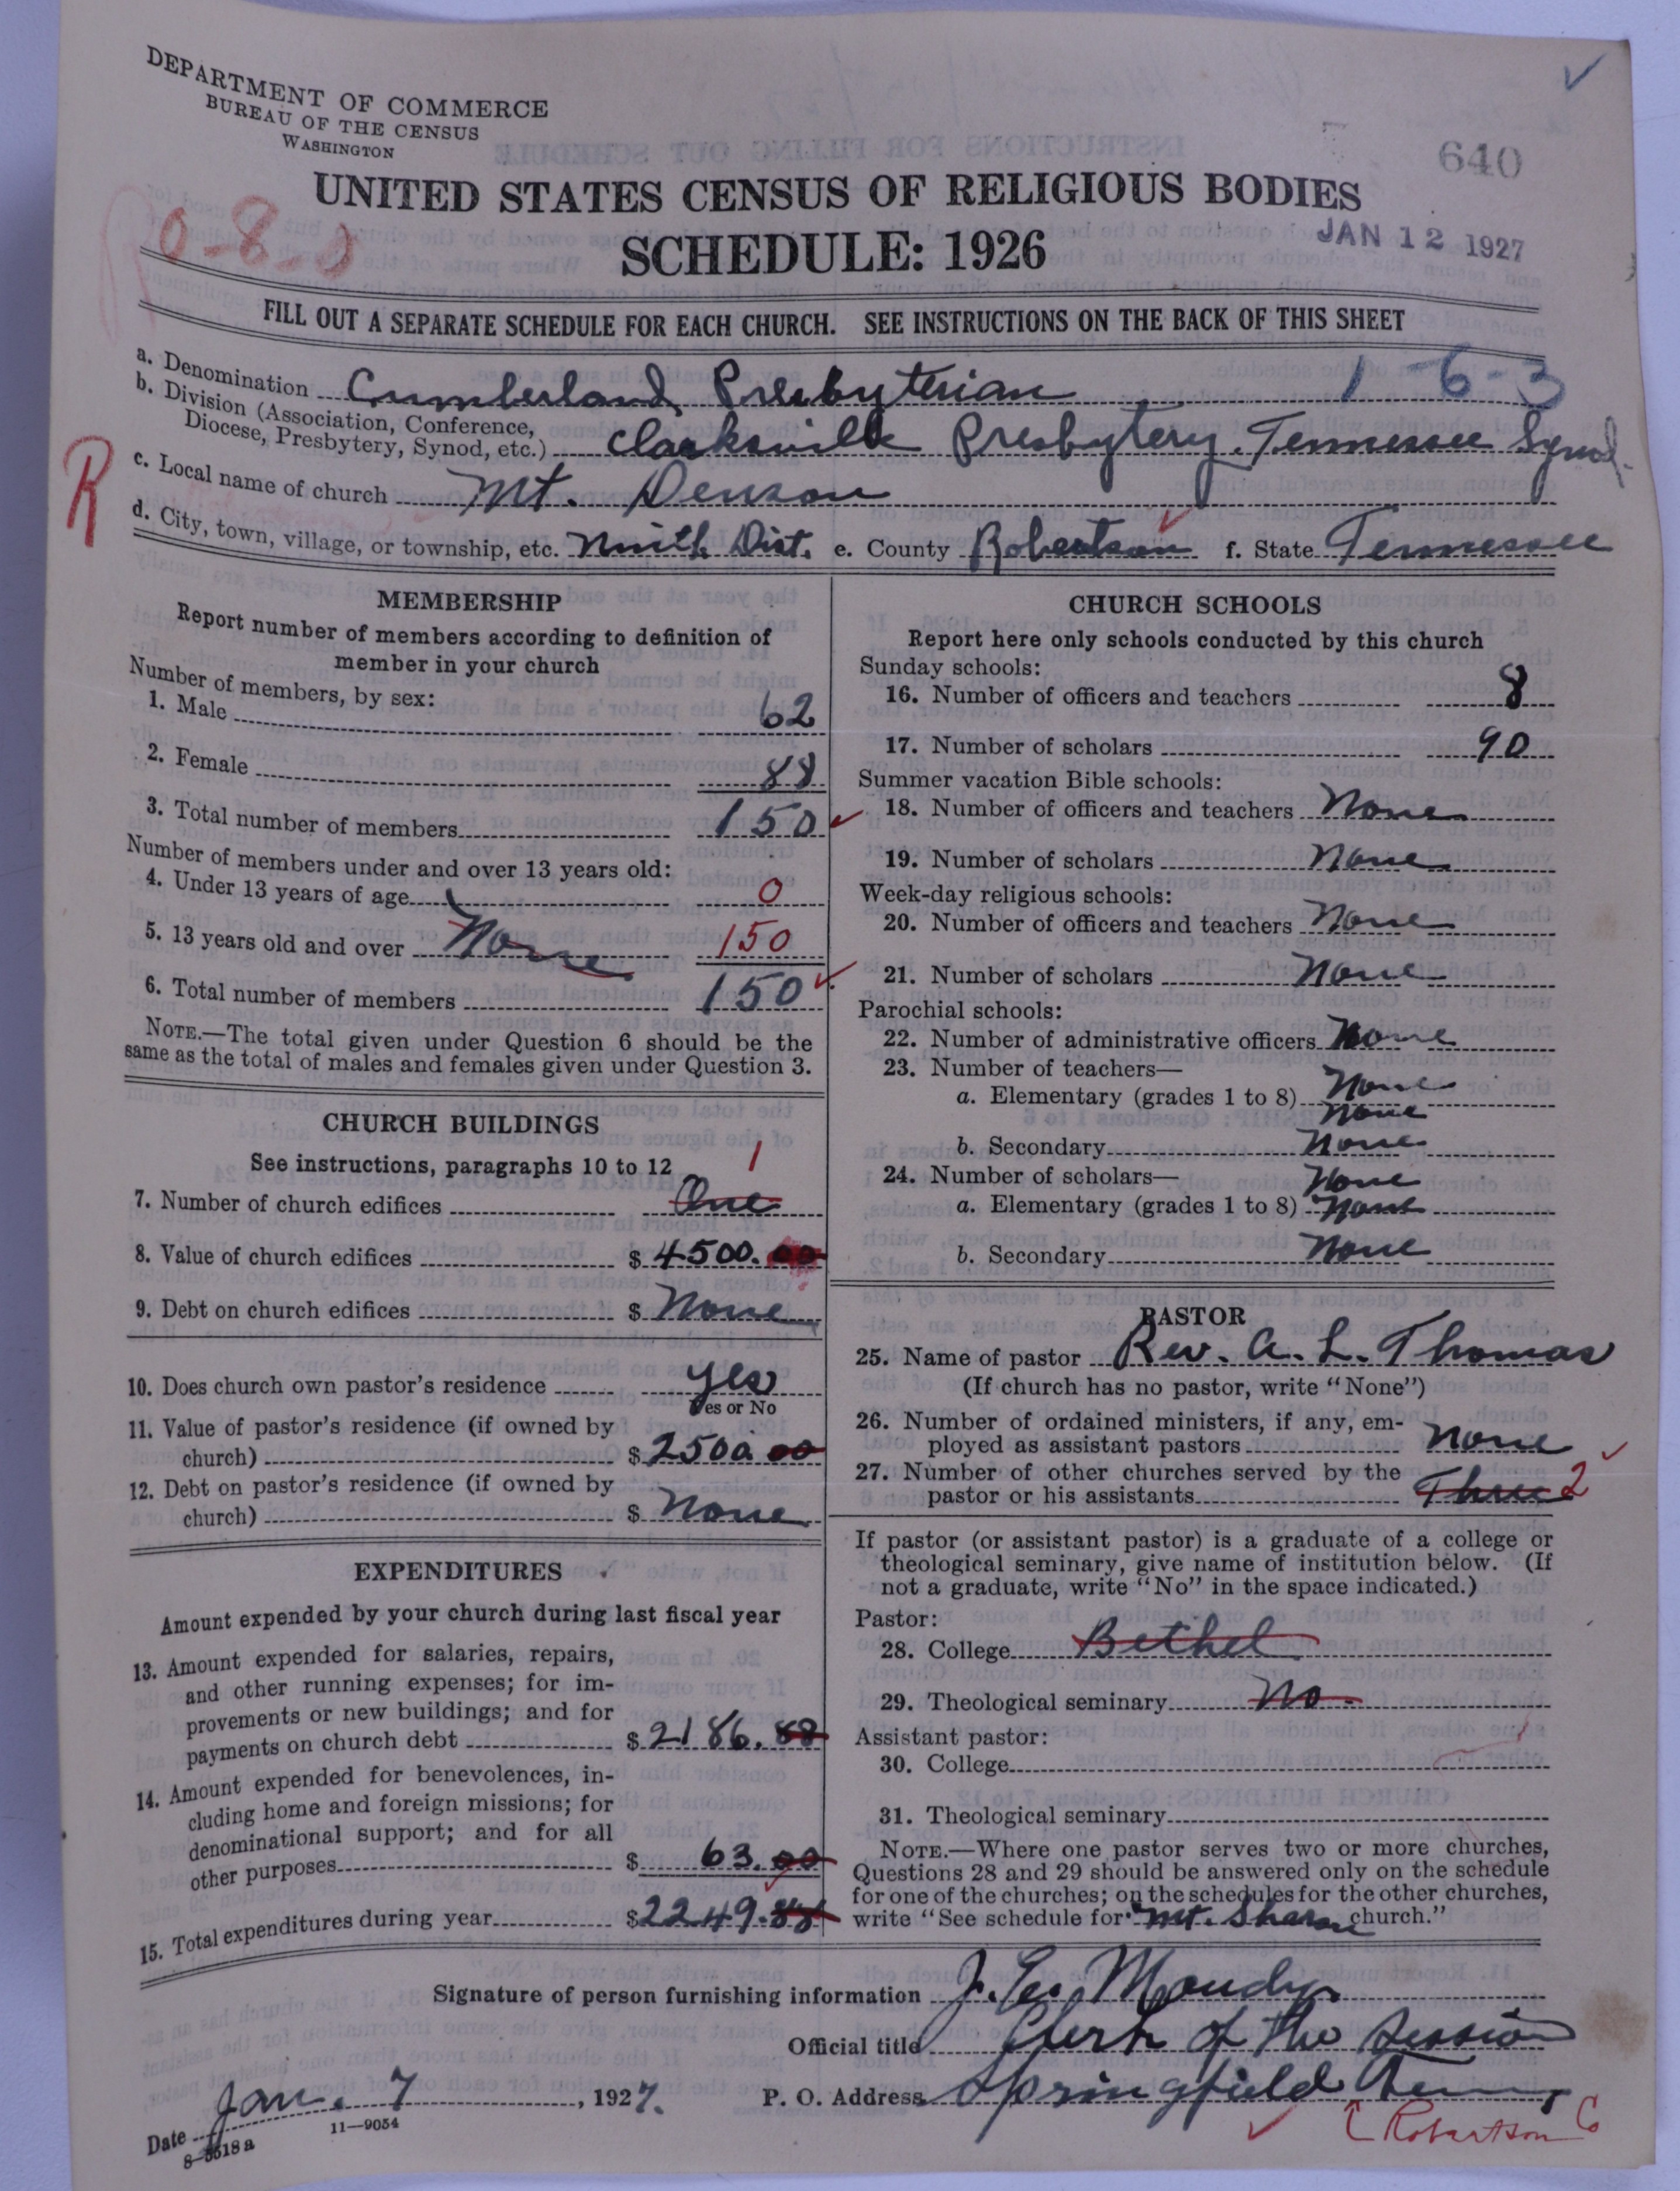 DEPARTMENT OF COMMERCE
BUREAU OF THE CENSUS
WASHINGTON
640
UNITED STATES CENSUS OF RELIGIOUS BODIES
SCHEDULE: 1926
JAN 12 1927
0-8-0
FILL OUT A SEPARATE SCHEDULE FOR EACH CHURCH. SEE INSTRUCTIONS ON THE BACK OF THIS SHEET
a. Denomination Cumberland Presbyterian 1-6-3
b. Division (Association, Conference,
Diocese, Presbytery, Synod, etc.) Clarksville Presbytery. Tennessee Synod.
R
c. Local name of church Mt. Denson
d. City, town, village, or township, etc. Ninth Dist. e. County Robertson f. State Tennessee
MEMBERSHIP
Report number of members according to definition of
member in your church
Number of members, by sex:
1. Male 62
2. Female 88
3. Total number of members 150
Number of members under and over 13 years old:
4. Under 13 years of age 0
5. 13 years old and over None 150
6. Total number of members 150
NOTE.—The total given under Question 6 should be the
same as the total of males and females given under Question 3.
CHURCH BUILDINGS
See instructions, paragraphs 10 to 12 1
7. Number of church edifices One
8. Value of church edifices $ 4500.00
9. Debt on church edifices $ None
10. Does church own pastor's residence yes
Yes or No
11. Value of pastor's residence (if owned by
church) $ 2500 00
12. Debt on pastor's residence (if owned by
church) $ None
EXPENDITURES
Amount expended by your church during last fiscal year
13. Amount expended for salaries, repairs,
and other running expenses; for im-
provements or new buildings; and for
payments on church debt $ 2186.88
14. Amount expended for benevolences, in-
cluding home and foreign missions; for
denominational support; and for all
other purposes $ 63.00
15. Total expenditures during year $ 2249.88
CHURCH SCHOOLS
Report here only schools conducted by this church
Sunday schools:
16. Number of officers and teachers 8
17. Number of scholars 90
Summer vacation Bible schools:
18. Number of officers and teachers None
19. Number of scholars None
Week-day religious schools:
20. Number of officers and teachers None
21. Number of scholars None
Parochial schools:
22. Number of administrative officers None
23. Number of teachers— None
a. Elementary (grades 1 to 8) None
b. Secondary None
24. Number of scholars— None
a. Elementary (grades 1 to 8) None
b. Secondary None
PASTOR
25. Name of pastor Rev. A. L. Thomas
(If church has no pastor, write "None")
26. Number of ordained ministers, if any, em-
ployed as assistant pastors None
27. Number of other churches served by the
pastor or his assistants Three 2
If pastor (or assistant pastor) is a graduate of a college or
theological seminary, give name of institution below. (If
not a graduate, write "No" in the space indicated.)
Pastor:
28. College Bethel
29. Theological seminary No
Assistant pastor:
30. College
31. Theological seminary
NOTE.—Where one pastor serves two or more churches,
Questions 28 and 29 should be answered only on the schedule
for one of the churches; on the schedules for the other churches,
write "See schedule for Mt. Sharon church."
Signature of person furnishing information J. Geo. Moudy
Official title Clerk of the Session
Date Jan. 7, 1927. P. O. Address Springfield Tenn,
11—9054
8-5518a
Robertson Co